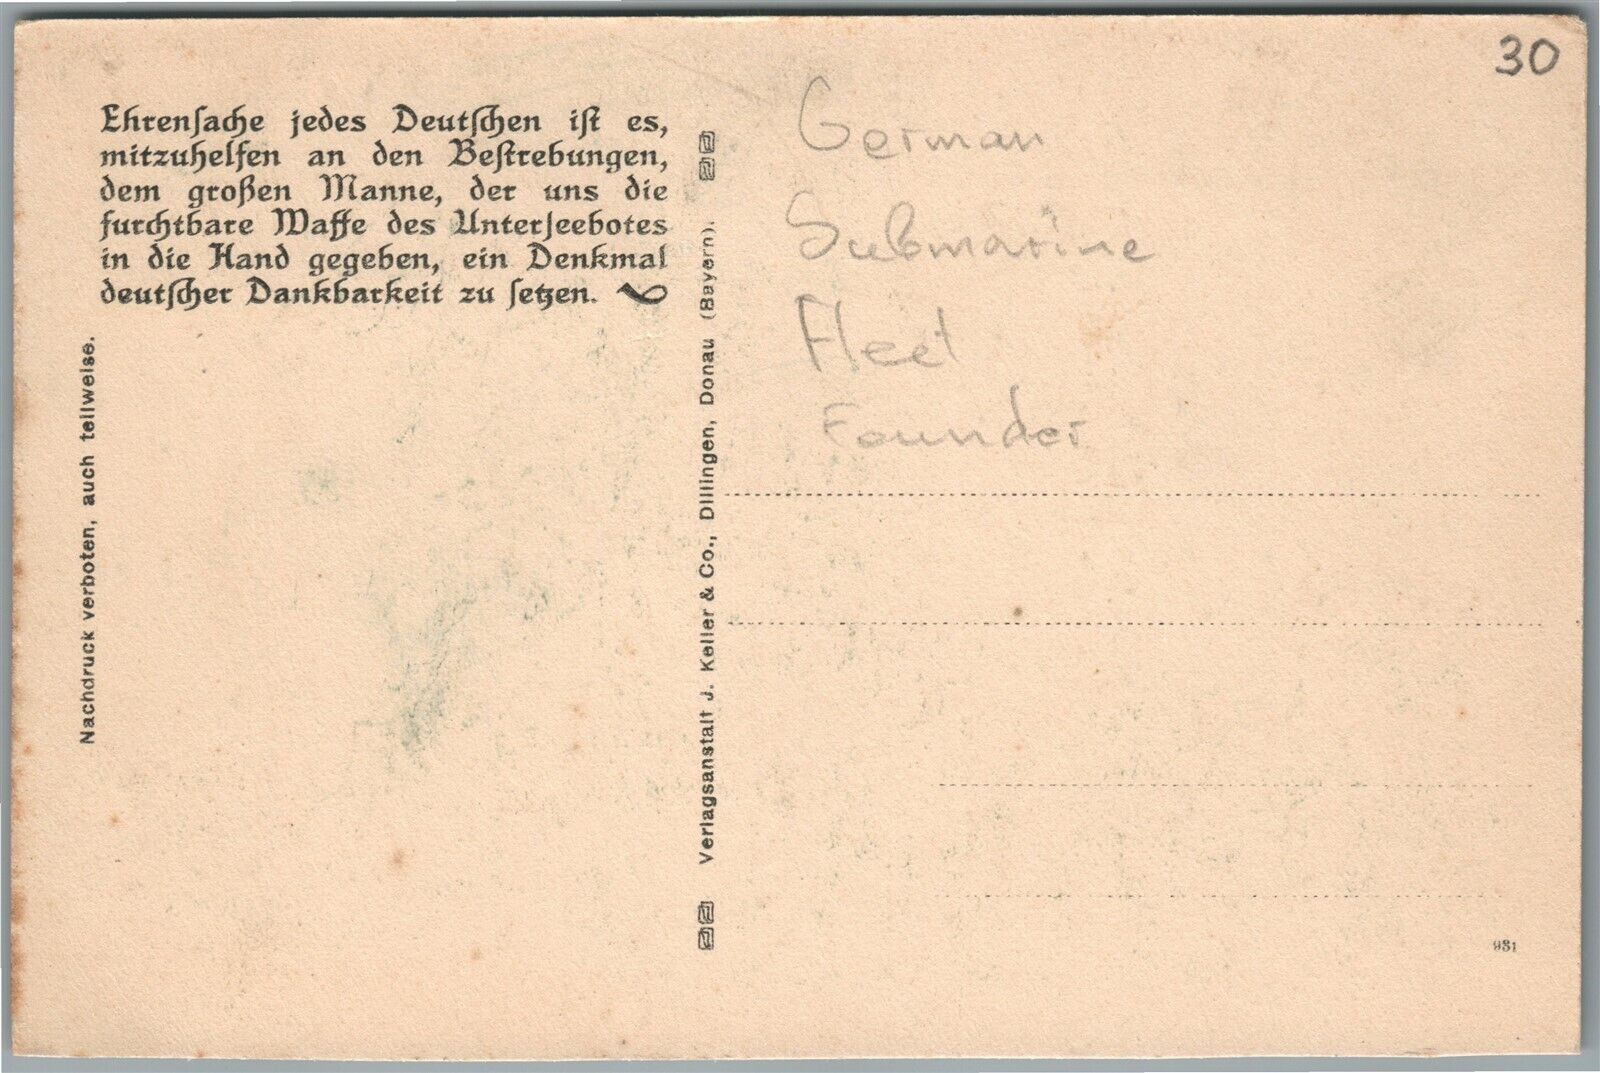 Ehrensache jedes Deutschen ist es,
mitzuhelfen an den Bestrebungen,
dem großen Manne, der uns die
furchtbare Waffe des Unterseebotes
in die Hand gegeben, ein Denkmal
deutscher Dankbarkeit zu setzen.
Nachdruck verboten, auch teilweise.
Verlagsanstalt J. Keller & Co., Dillingen, Donau (Bayern).
30
German
Submarine
Fleet
Founder
931